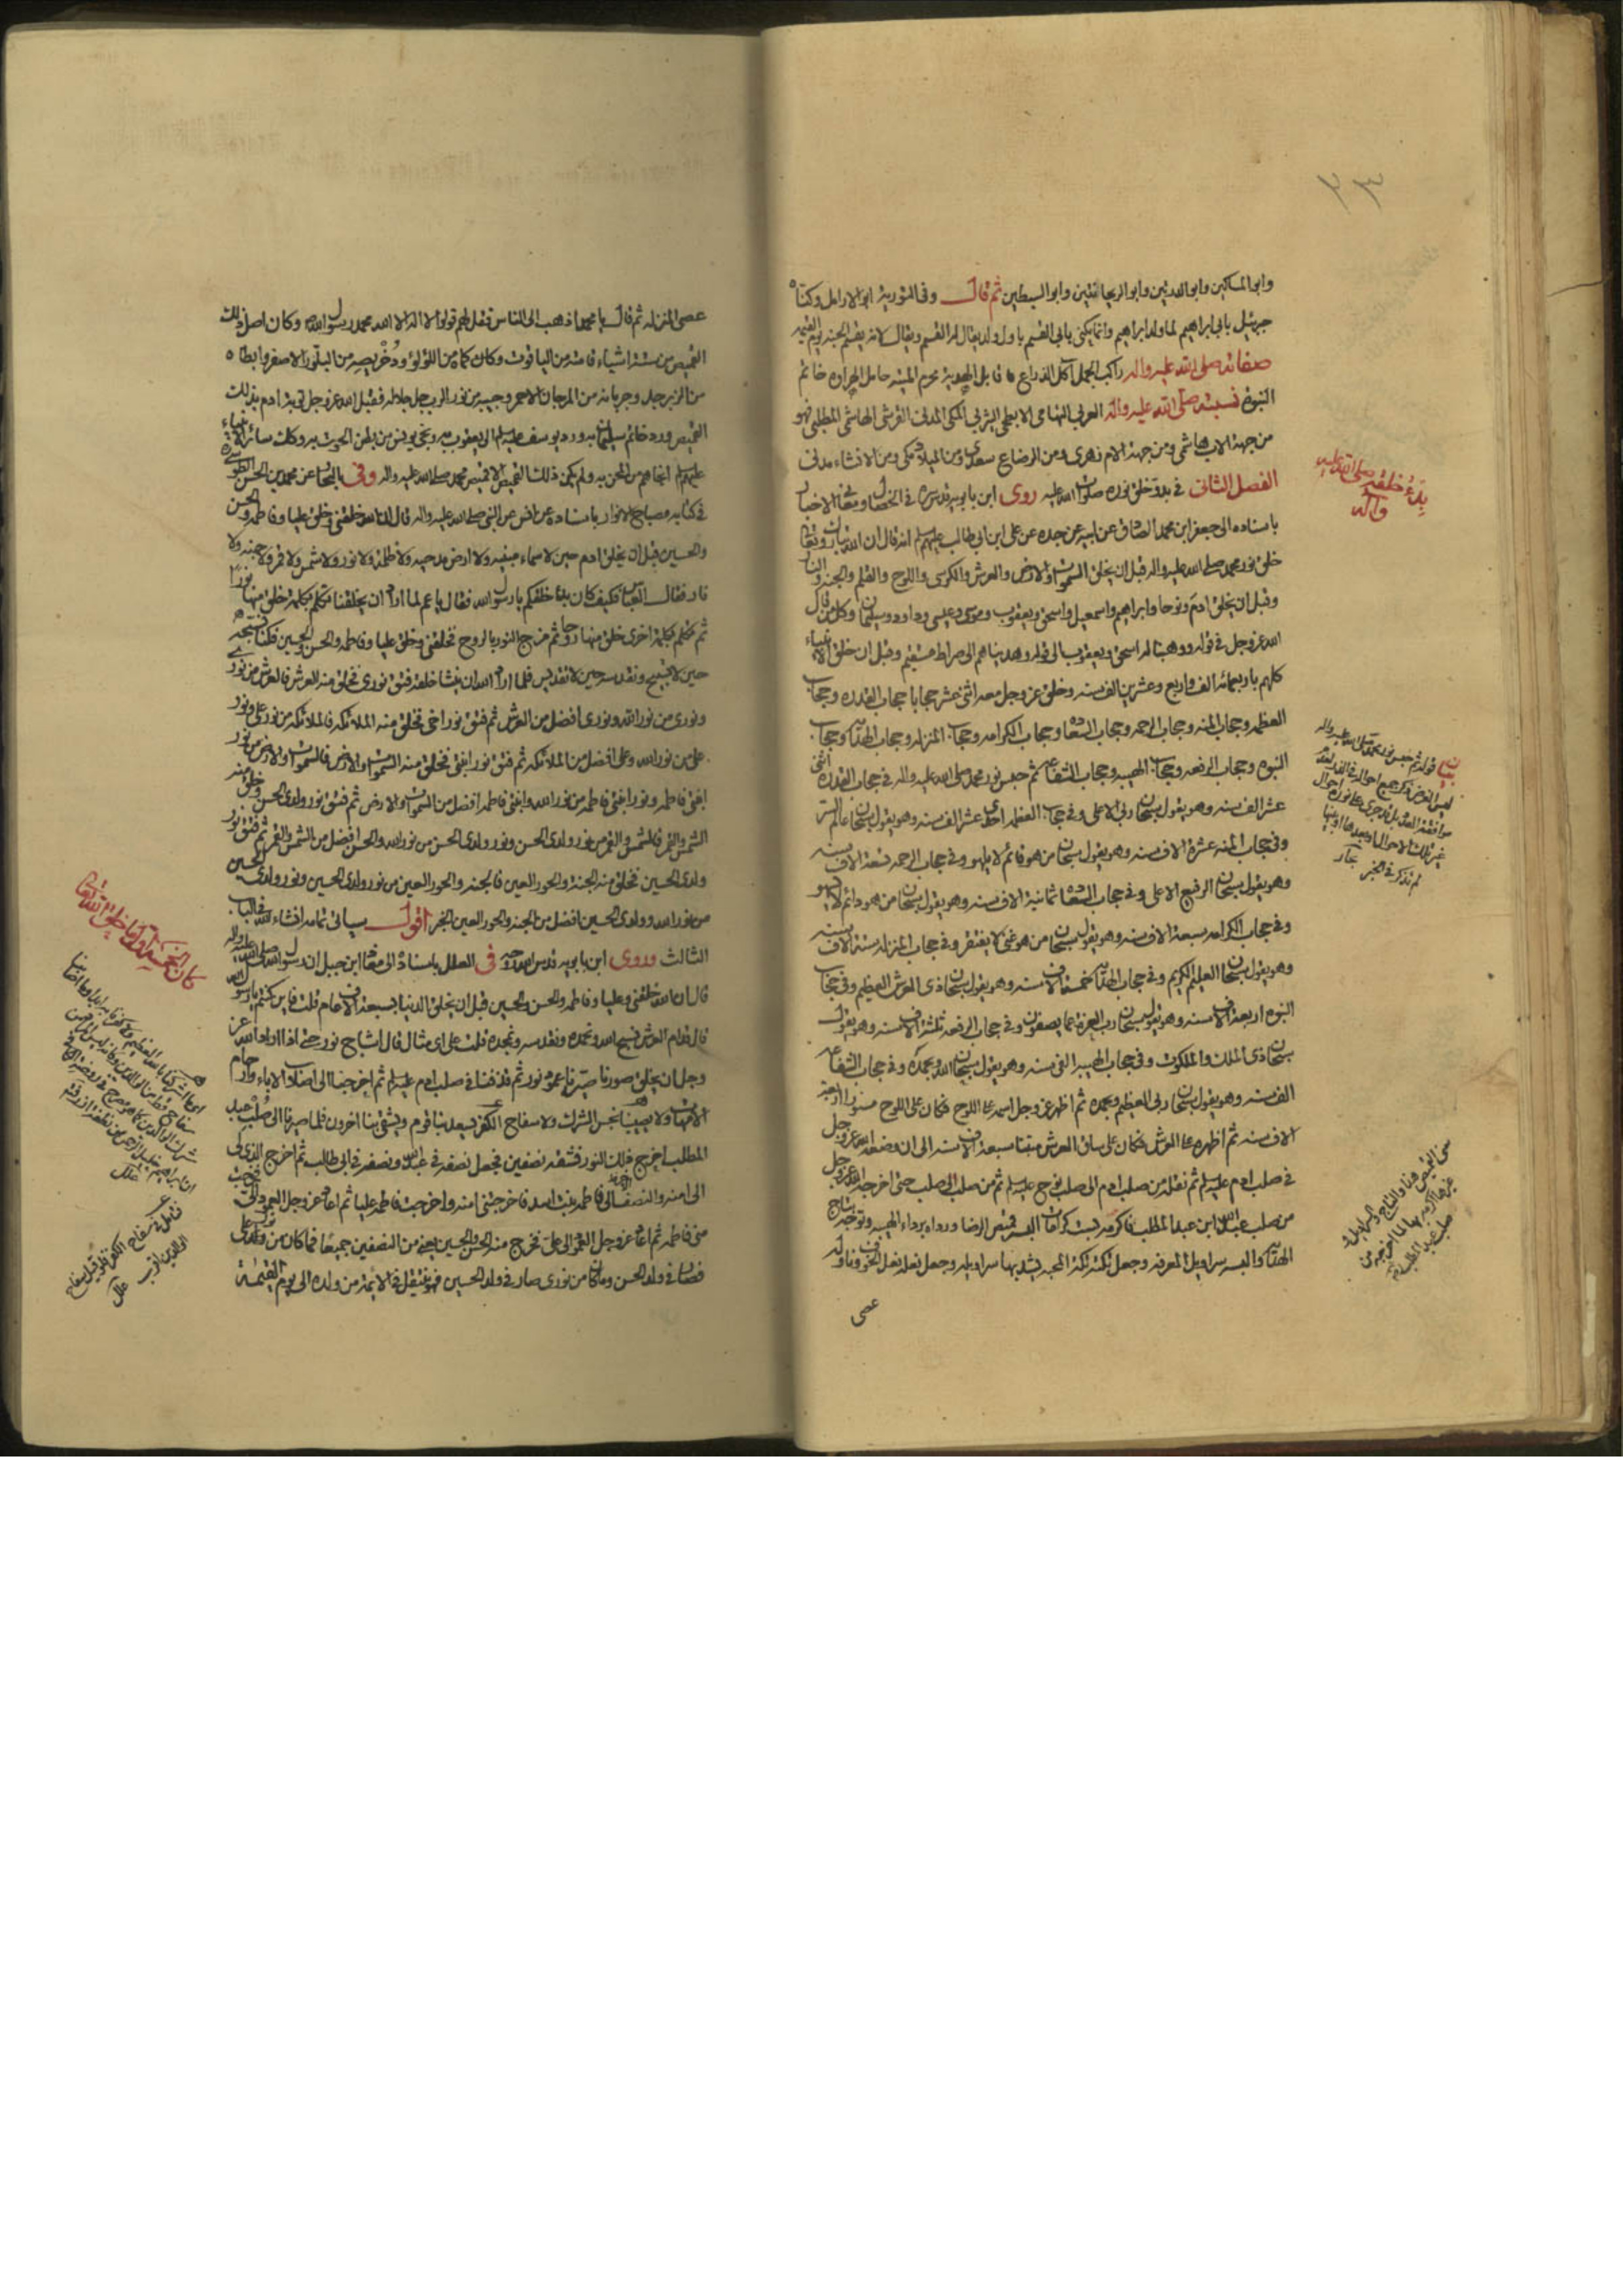 ٢٣
وابو المساكين وابو الدرتين وابو الريحانتين وابو السبطين ثم قال وفى التورية ابو الارامل وكناه
جبرئيل بابى ابراهيم لما ولد ابراهيم وانما يكنى بابى القسم باول ولد يقال له القسم ويقال لانه يقسم الجنة يوم القيمة
صفاته صلى الله عليه واله راكب الجمل آكل الذراع قابل الهدية محرم الميتة حامل الهراوة خاتم
النبوة نسبته صلى الله عليه واله العربى التهامى الابطحى اليثربى المكى المدنى القرشى الهاشمى المطلبى فهو
من جهة الاب هاشمى ومن جهة الام زهرى ومن الرضاع سعدى ومن الميلاد مكى ومن الانشاء مدنى
الفصل الثانى فى بدو خلق نوره صلوات الله عليه روى ابن بابويه قدس سره فى الخصال ومعانى الاخبار
باسناده الى جعفر ابن محمد الصادق عن ابيه عن جده عن على ابن ابى طالب عليهم السلم انه قال ان الله تبارك وتعالى
خلق نور محمد صلى الله عليه واله قبل ان يخلق السموات والارض والعرش والكرسى واللوح والقلم والجنة والنار
وقبل ان يخلق ادم ونوحا وابراهيم واسمعيل واسحق ويعقوب وموسى وعيسى وداود وسليمان وكل من قال
الله عز وجل فى قوله ووهبنا له اسحق ويعقوب الى قوله وهديناهم الى صراط مستقيم وقبل ان خلق الانبياء
كلهم باربعمائة الف واربع وعشرين الف سنه وخلق عز وجل معه اثنى عشر حجابا حجاب القدرة وحجاب
العظمه وحجاب المنه وحجاب الرحمه وحجاب السعادة وحجاب الكرامه وحجاب المنزله وحجاب الهداية وحجاب
النبوه وحجاب الرفعه وحجاب الهيبه وحجاب الشفاعه ثم حبس نور محمد صلى الله عليه واله فى حجاب القدره اثنى
عشر الف سنه وهو يقول سبحان ربى الاعلى وفى حجاب العظمه احدى عشر الف سنه وهو يقول سبحان عالم السر
وفى حجاب المنه عشرة الاف سنه وهو يقول سبحان من هو قائم لا يلهو وفى حجاب الرحمه تسعة الاف سنه
وهو يقول سبحان الرفيع الاعلى وفى حجاب السعادة ثمانية الاف سنه وهو يقول سبحان من هو دائم لا يسهو
وفى حجاب الكرامه سبعة الاف سنه وهو يقول سبحان من هو غنى لا يفتقر وفى حجاب المنزله ستة الاف سنه
وهو يقول سبحان العليم الكريم وفى حجاب الهداية خمسة الاف سنه وهو يقول سبحان ذى العرش العظيم وفى حجاب
النبوه اربعة الاف سنه وهو يقول سبحان رب العزة عما يصفون وفى حجاب الرفعه ثلثة الاف سنه وهو يقول
سبحان ذى الملك والملكوت وفى حجاب الهيبه الفى سنه وهو يقول سبحان الله وبحمده وفى حجاب الشفاعه
الف سنه وهو يقول سبحان ربى العظيم وبحمده ثم اظهر عز وجل اسمه على اللوح فكان على اللوح منورا اربعة
الاف سنه ثم اظهره على العرش فكان على ساق العرش مثبتا سبعة الاف سنه الى ان وضعه الله عز وجل
فى صلب ادم عليه السلم ثم نقله من صلب ادم الى صلب نوح عليه السلم ثم من صلب الى صلب حتى اخرجه الله عز وجل
من صلب عبد الله ابن عبد المطلب فاكرمه بست كرامات البسه قميص الرضا ورداه برداء الهيبه وتوجه بتاج
الهداية والبسه سراويل المعرفه وجعل تكته تكة المحبه يشد بها سراويله وجعل نعله نعل الخوف وناوله
عصى
بدء خلقه صلى الله عليه
واله
عصى المنزله ثم قال يا محمد اذهب الى الناس فقل لهم قولوا لا اله الا الله محمد رسول الله وكان اصل ذلك
القميص من ستة اشياء قامته من الياقوت وكان كماه من اللؤلؤ ودخريصه من البلور الاصفر وابطاه
من الزبرجد وجربانه من المرجان الاحمر وجيبه من نور الرب جل جلاله فقبل الله عز وجل توبة ادم بذلك
القميص ورد خاتم سليمان به ورد يوسف عليه السلم الى يعقوب به ونجى يونس من بطن الحوت به وكذلك سائر الانبياء
عليهم السلم انجاهم من المحن به ولم يكن ذلك القميص الا قميص محمد صلى الله عليه واله وفى البحار عن محمد بن الحسن الطوسى
فى كتابه مصباح الانوار باسناده عن انس عن النبى صلى الله عليه واله قال ان الله خلقنى وخلق عليا وفاطمه والحسن
والحسين قبل ان يخلق ادم حين لا سماء مبنيه ولا ارض مدحيه ولا ظلمة ولا نور ولا شمس ولا قمر ولا جنه ولا
نار فقال العباس فكيف كان بدء خلقكم يا رسول الله فقال يا عم لما اراد الله ان يخلقنا تكلم بكلمة خلق منها نورا
ثم تكلم بكلمة اخرى خلق منها روحا ثم مزج النور بالروح فخلقنى وخلق عليا وفاطمه والحسن والحسين فكنا نسبحه
حين لا تسبيح ونقدسه حين لا تقديس فلما اراد الله ان ينشأ خلقه فتق نورى فخلق منه العرش فالعرش من نورى
ونورى من نور الله ونورى افضل من العرش ثم فتق نور اخى فخلق منه الملائكه فالملائكه من نور على ونور
على من نور الله وعلى افضل من الملائكه ثم فتق نور ابنتى فخلق منه السموات والارض فالسموات والارض من نور
ابنتى فاطمه ونور ابنتى فاطمه من نور الله وابنتى فاطمه افضل من السموات والارض ثم فتق نور ولدى الحسن وخلق منه
الشمس والقمر فالشمس والقمر من نور ولدى الحسن ونور ولدى الحسن من نور الله والحسن افضل من الشمس والقمر ثم فتق نور
ولدى الحسين فخلق منه الجنة والحور العين فالجنه والحور العين من نور ولدى الحسين ونور ولدى الحسين
من نور الله وولدى الحسين افضل من الجنه والحور العين الخبر اقول سياتى تمامه انشاء الله فى الباب
الثالث وروى ابن بابويه قدس الله روحه فى العلل باسناده الى معاذ ابن جبل ان رسول الله صلى الله عليه واله
قال ان الله خلقنى وعليا وفاطمه والحسن والحسين قبل ان يخلق الدنيا بسبعة الاف عام قلت فاين كنتم يا رسول الله
قال قدام العرش نسبح الله ونحمده ونقدسه ونمجده قلت على اى مثال قال اشباح نور حتى اذا اراد الله عز
وجل ان يخلق صورنا صيرنا عمود نور ثم قذفنا فى صلب ادم عليه السلم ثم اخرجنا الى اصلاب الاباء وارحام
الامهات ولا يصيبنا نجس الشرك ولا سفاح الكفر يسعد بنا قوم ويشقى بنا اخرون فلما صيرنا الى صلب عبد
المطلب اخرج ذلك النور فشقه نصفين فجعل نصفه فى عبد الله ونصفه فى ابى طالب ثم اخرج الذى لى
الى امنه والنصف الى فاطمه بنت اسد فاخرجتنى امنه واخرجت فاطمه عليا ثم اعاد عز وجل العمود الى فخرجت
منى فاطمه ثم اعاد عز وجل العمود الى على فخرج منه الحسن والحسين يعنى من النصفين جميعا فما كان من نور على
فصار فى ولد الحسن وما كان من نورى صار فى ولد الحسين فهو ينتقل فى الائمة من ولده الى يوم القيمة